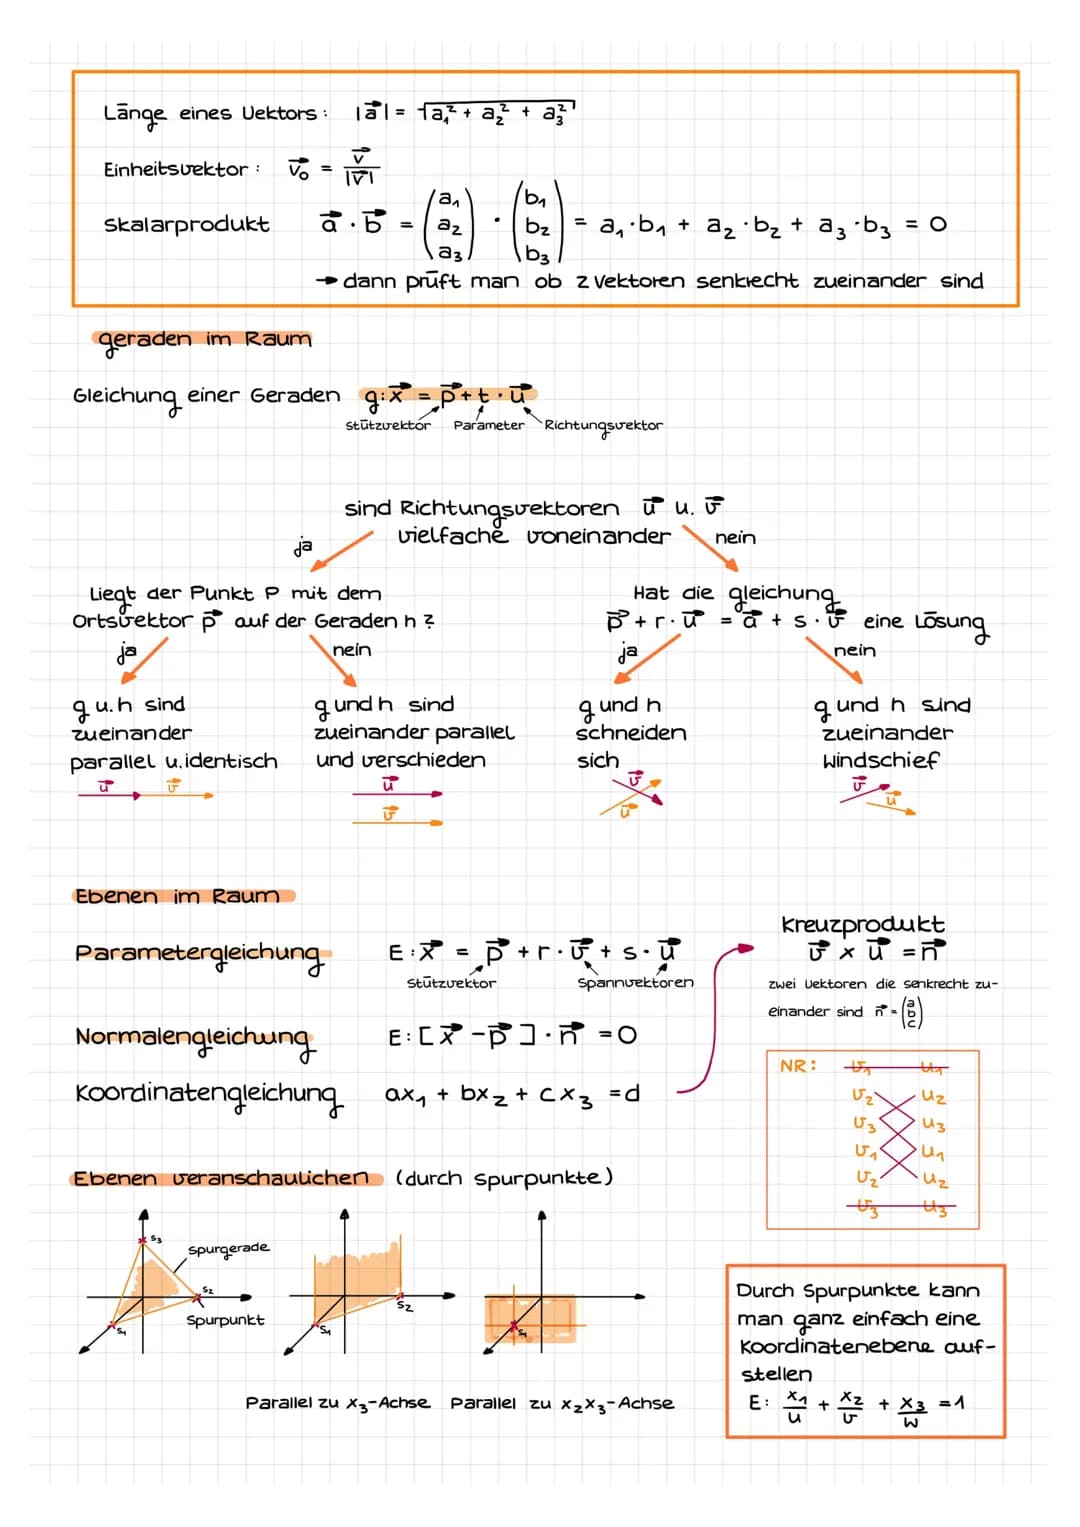 Länge eines Vektors: |a⃗| = √(a₁² + a₂² + a₃²)
Einheitsvektor: v⃗₀ = v⃗ / |v⃗|
Skalarprodukt a⃗ · b⃗ = (a₁ a₂ a₃) · (b₁ b₂ b₃) = a₁·b₁ + a₂·b₂ + a₃·b₃ = 0
→ dann prüft man ob 2 Vektoren senkrecht zueinander sind
geraden im Raum
Gleichung einer Geraden g: x⃗ = p⃗ + t · u⃗
Stützvektor Parameter Richtungsvektor
sind Richtungsvektoren u⃗ u. v⃗
vielfache voneinander
ja nein
Liegt der Punkt P mit dem
Ortsvektor p⃗ auf der Geraden h?
ja nein
Hat die gleichung
p⃗ + r · u⃗ = a⃗ + s · v⃗ eine Lösung
ja nein
g u. h sind
zueinander
parallel u. identisch
u⃗ v⃗
g und h sind
zueinander parallel
und verschieden
u⃗
v⃗
g und h
schneiden
sich
v⃗
u⃗
g und h sind
zueinander
windschief
v⃗
u⃗
Ebenen im Raum
Parametergleichung E: x⃗ = p⃗ + r · v⃗ + s · u⃗
Stützvektor Spannvektoren
Normalengleichung E: [x⃗ - p⃗] · n⃗ = 0
Koordinatengleichung ax₁ + bx₂ + cx₃ = d
Kreuzprodukt
v⃗ × u⃗ = n⃗
zwei Vektoren die senkrecht zu-
einander sind n⃗ = (a b c)
NR: v₁ u₁
v₂ u₂
v₃ u₃
v₁ u₁
v₂ u₂
v₃ u₃
Ebenen veranschaulichen (durch Spurpunkte)
S₃
Spurgerade
S₂
Spurpunkt
S₁
S₂
S₁
S₁
Parallel zu x₃-Achse Parallel zu x₂x₃-Achse
Durch Spurpunkte kann
man ganz einfach eine
Koordinatenebene auf-
stellen
E: x₁/u + x₂/v + x₃/w = 1